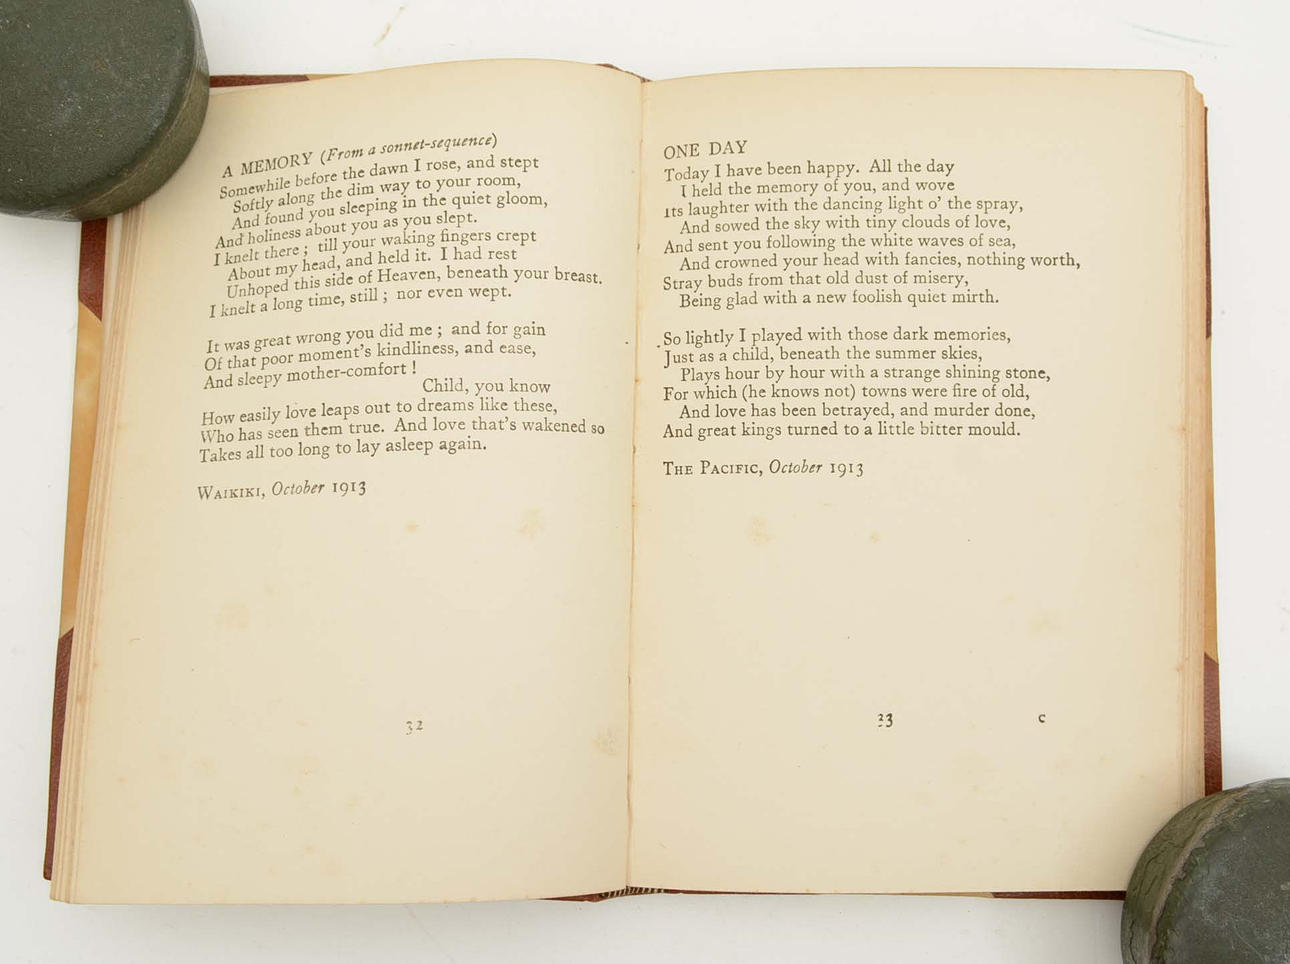 A MEMORY (From a sonnet-sequence)
Somewhile before the dawn I rose, and stept
Softly along the dim way to your room,
And found you sleeping in the quiet gloom,
And holiness about you as you slept.
I knelt there ; till your waking fingers crept
About my head, and held it. I had rest
Unhoped this side of Heaven, beneath your breast.
I knelt a long time, still ; nor even wept.
It was great wrong you did me ; and for gain
Of that poor moment's kindliness, and ease,
And sleepy mother-comfort !
Child, you know
How easily love leaps out to dreams like these,
Who has seen them true. And love that's wakened so
Takes all too long to lay asleep again.
WAIKIKI, October 1913
32
ONE DAY
Today I have been happy. All the day
I held the memory of you, and wove
Its laughter with the dancing light o' the spray,
And sowed the sky with tiny clouds of love,
And sent you following the white waves of sea,
And crowned your head with fancies, nothing worth,
Stray buds from that old dust of misery,
Being glad with a new foolish quiet mirth.
So lightly I played with those dark memories,
Just as a child, beneath the summer skies,
Plays hour by hour with a strange shining stone,
For which (he knows not) towns were fire of old,
And love has been betrayed, and murder done,
And great kings turned to a little bitter mould.
THE PACIFIC, October 1913
33 c